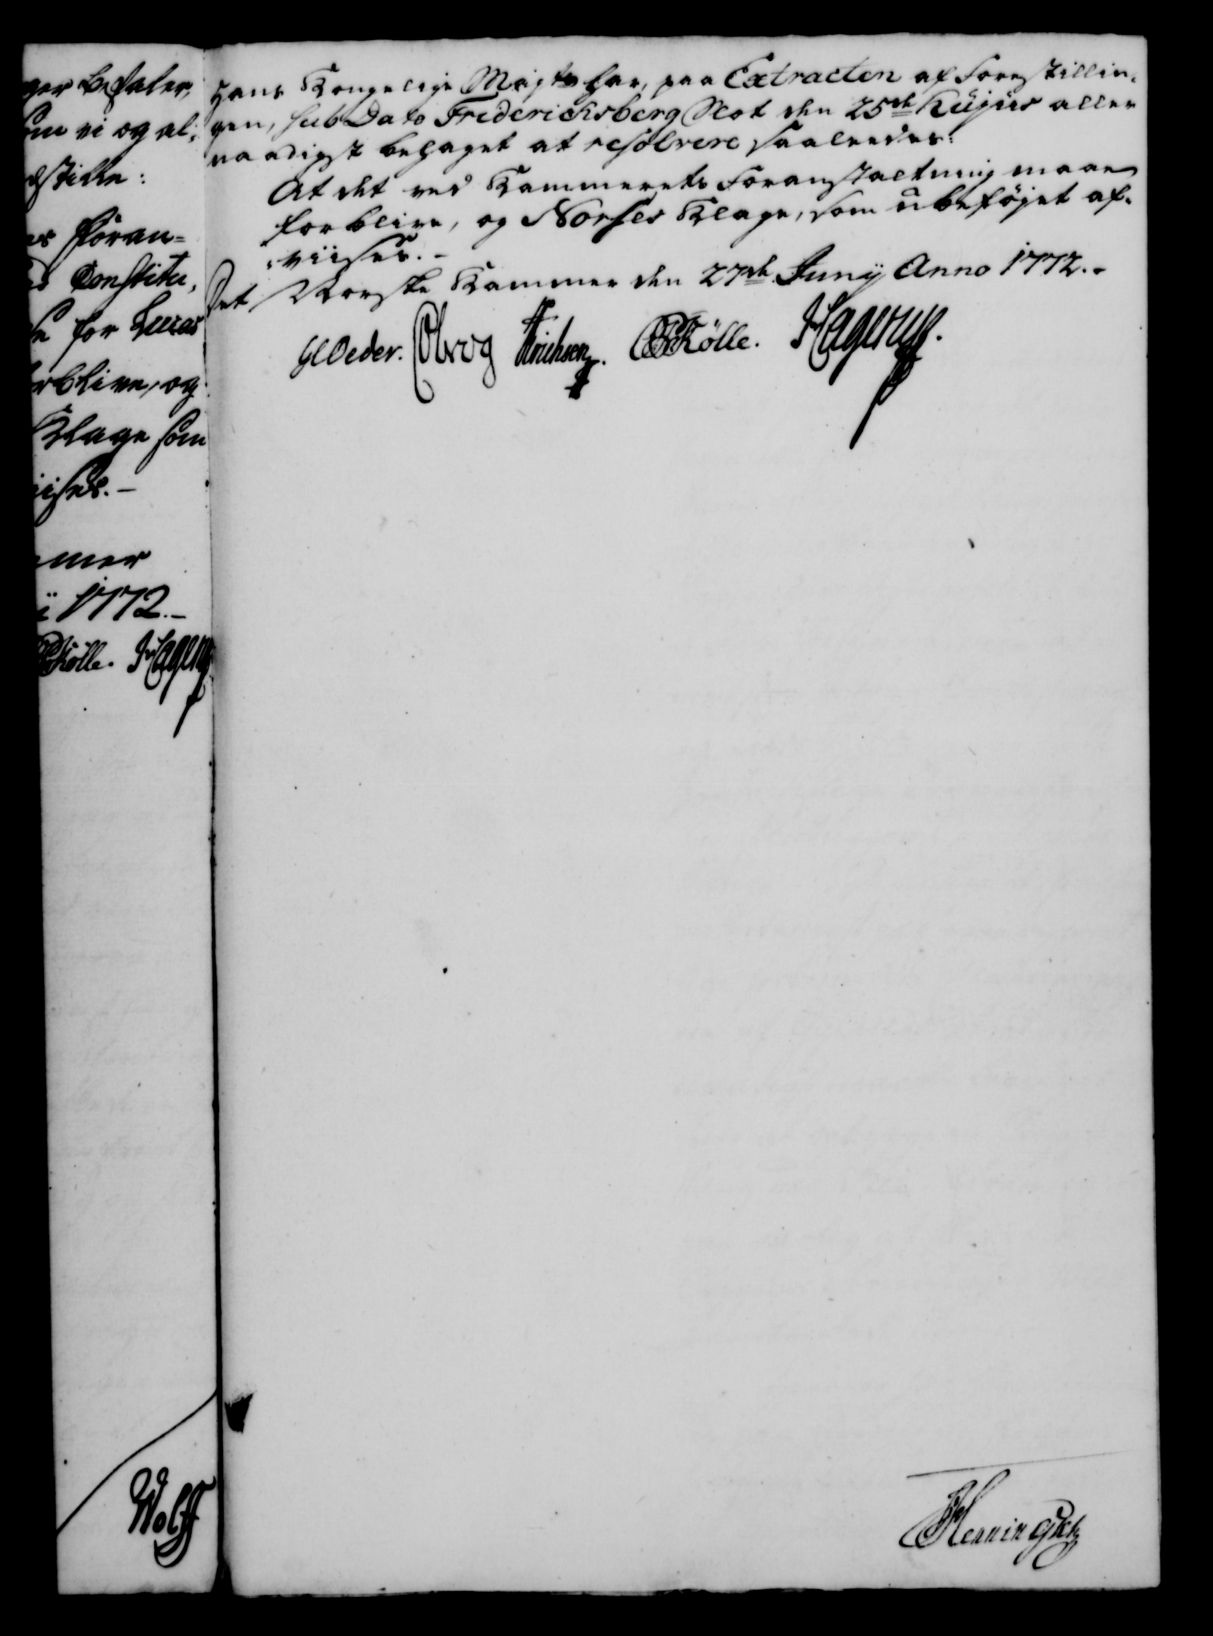 ger befaler,
som vi og al,
dstille:
es foran=
ds Constitu,
se for Lucas
rblive, og
Klage som
iises.-
mmer
ii 1772.-
Kølle. Hagerup
Wolff
Hans Kongelige Majts har, paa Extracten af Forestillin,
gen, sub Dato Fredericksberg Slot den 25de Hujus aller
naadigst behaget at resolvere saaleedes:
At det ved Kammerets Foranstaltning maae
forblive, og Norses Klage, som ubeføjet af,
viises.-
Det Norske Kammer den 27de Junij Anno 1772.-
GCOeder. Cbrog Erichsen. Kølle. Hagerup.
Henningsen